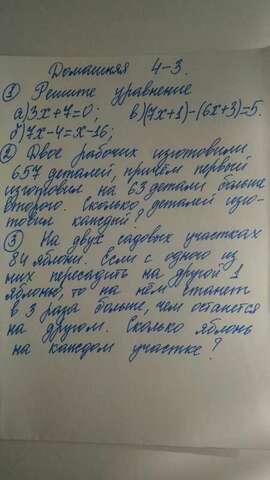 Домашняя 4-3.
① Решите уравнение
а) 3x+7=0; в) (7x+1)-(6x+3)=5.
б) 7x-4=x-16;
② Двое рабочих изготовили
657 деталей, причём первый
изготовил на 63 детали больше
второго. Сколько деталей изго-
товил каждый?
③ На двух садовых участках
84 яблони. Если с одного из
них пересадить на другой 1
яблоню, то на нём станет
в 3 раза больше, чем останется
на другом. Сколько яблонь
на каждом участке?